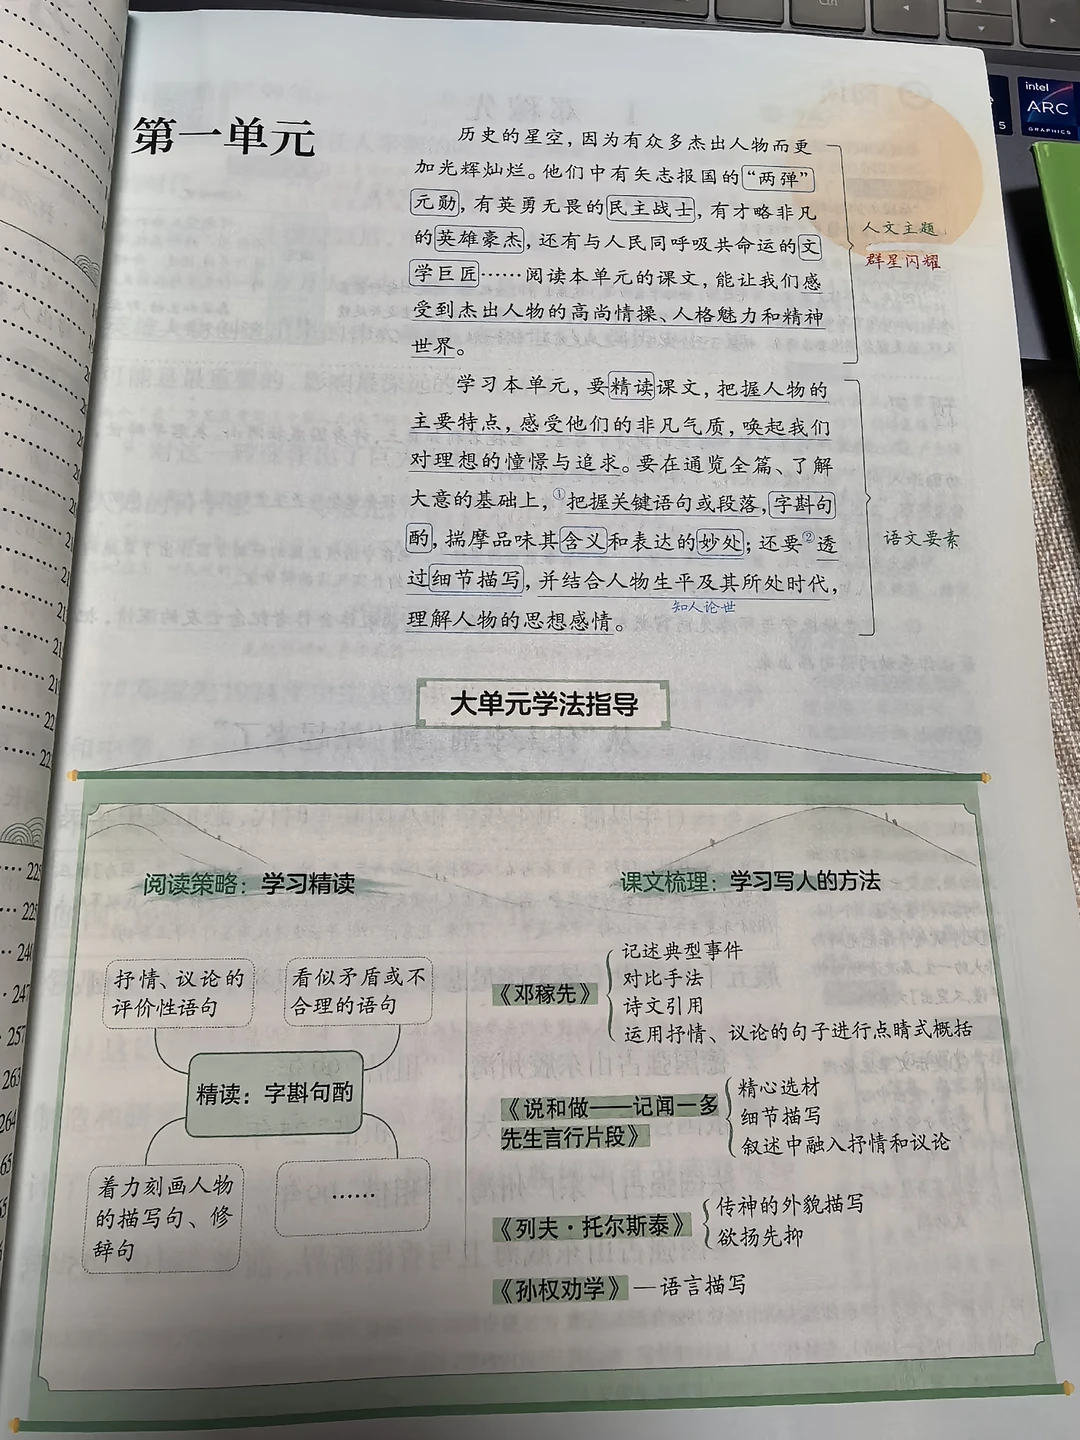 第一单元
历史的星空，因为有众多杰出人物而更
加光辉灿烂。他们中有矢志报国的“两弹”
元勋，有英勇无畏的民主战士，有才略非凡
的英雄豪杰，还有与人民同呼吸共命运的文
学巨匠……阅读本单元的课文，能让我们感
受到杰出人物的高尚情操、人格魅力和精神
世界。
人文主题
群星闪耀
学习本单元，要精读课文，把握人物的
主要特点，感受他们的非凡气质，唤起我们
对理想的憧憬与追求。要在通览全篇、了解
大意的基础上，①把握关键语句或段落，字斟句
酌，揣摩品味其含义和表达的妙处；还要②透
过细节描写，并结合人物生平及其所处时代，
知人论世
理解人物的思想感情。
语文要素
大单元学法指导
阅读策略：学习精读
抒情、议论的
评价性语句
看似矛盾或不
合理的语句
精读：字斟句酌
着力刻画人物
的描写句、修
辞句
……
课文梳理：学习写人的方法
《邓稼先》
记述典型事件
对比手法
诗文引用
运用抒情、议论的句子进行点睛式概括
《说和做——记闻一多
先生言行片段》
精心选材
细节描写
叙述中融入抒情和议论
《列夫·托尔斯泰》
传神的外貌描写
欲扬先抑
《孙权劝学》—语言描写
intel
ARC
GRAPHICS
Ctrl
225
225
246
247
257
263
264